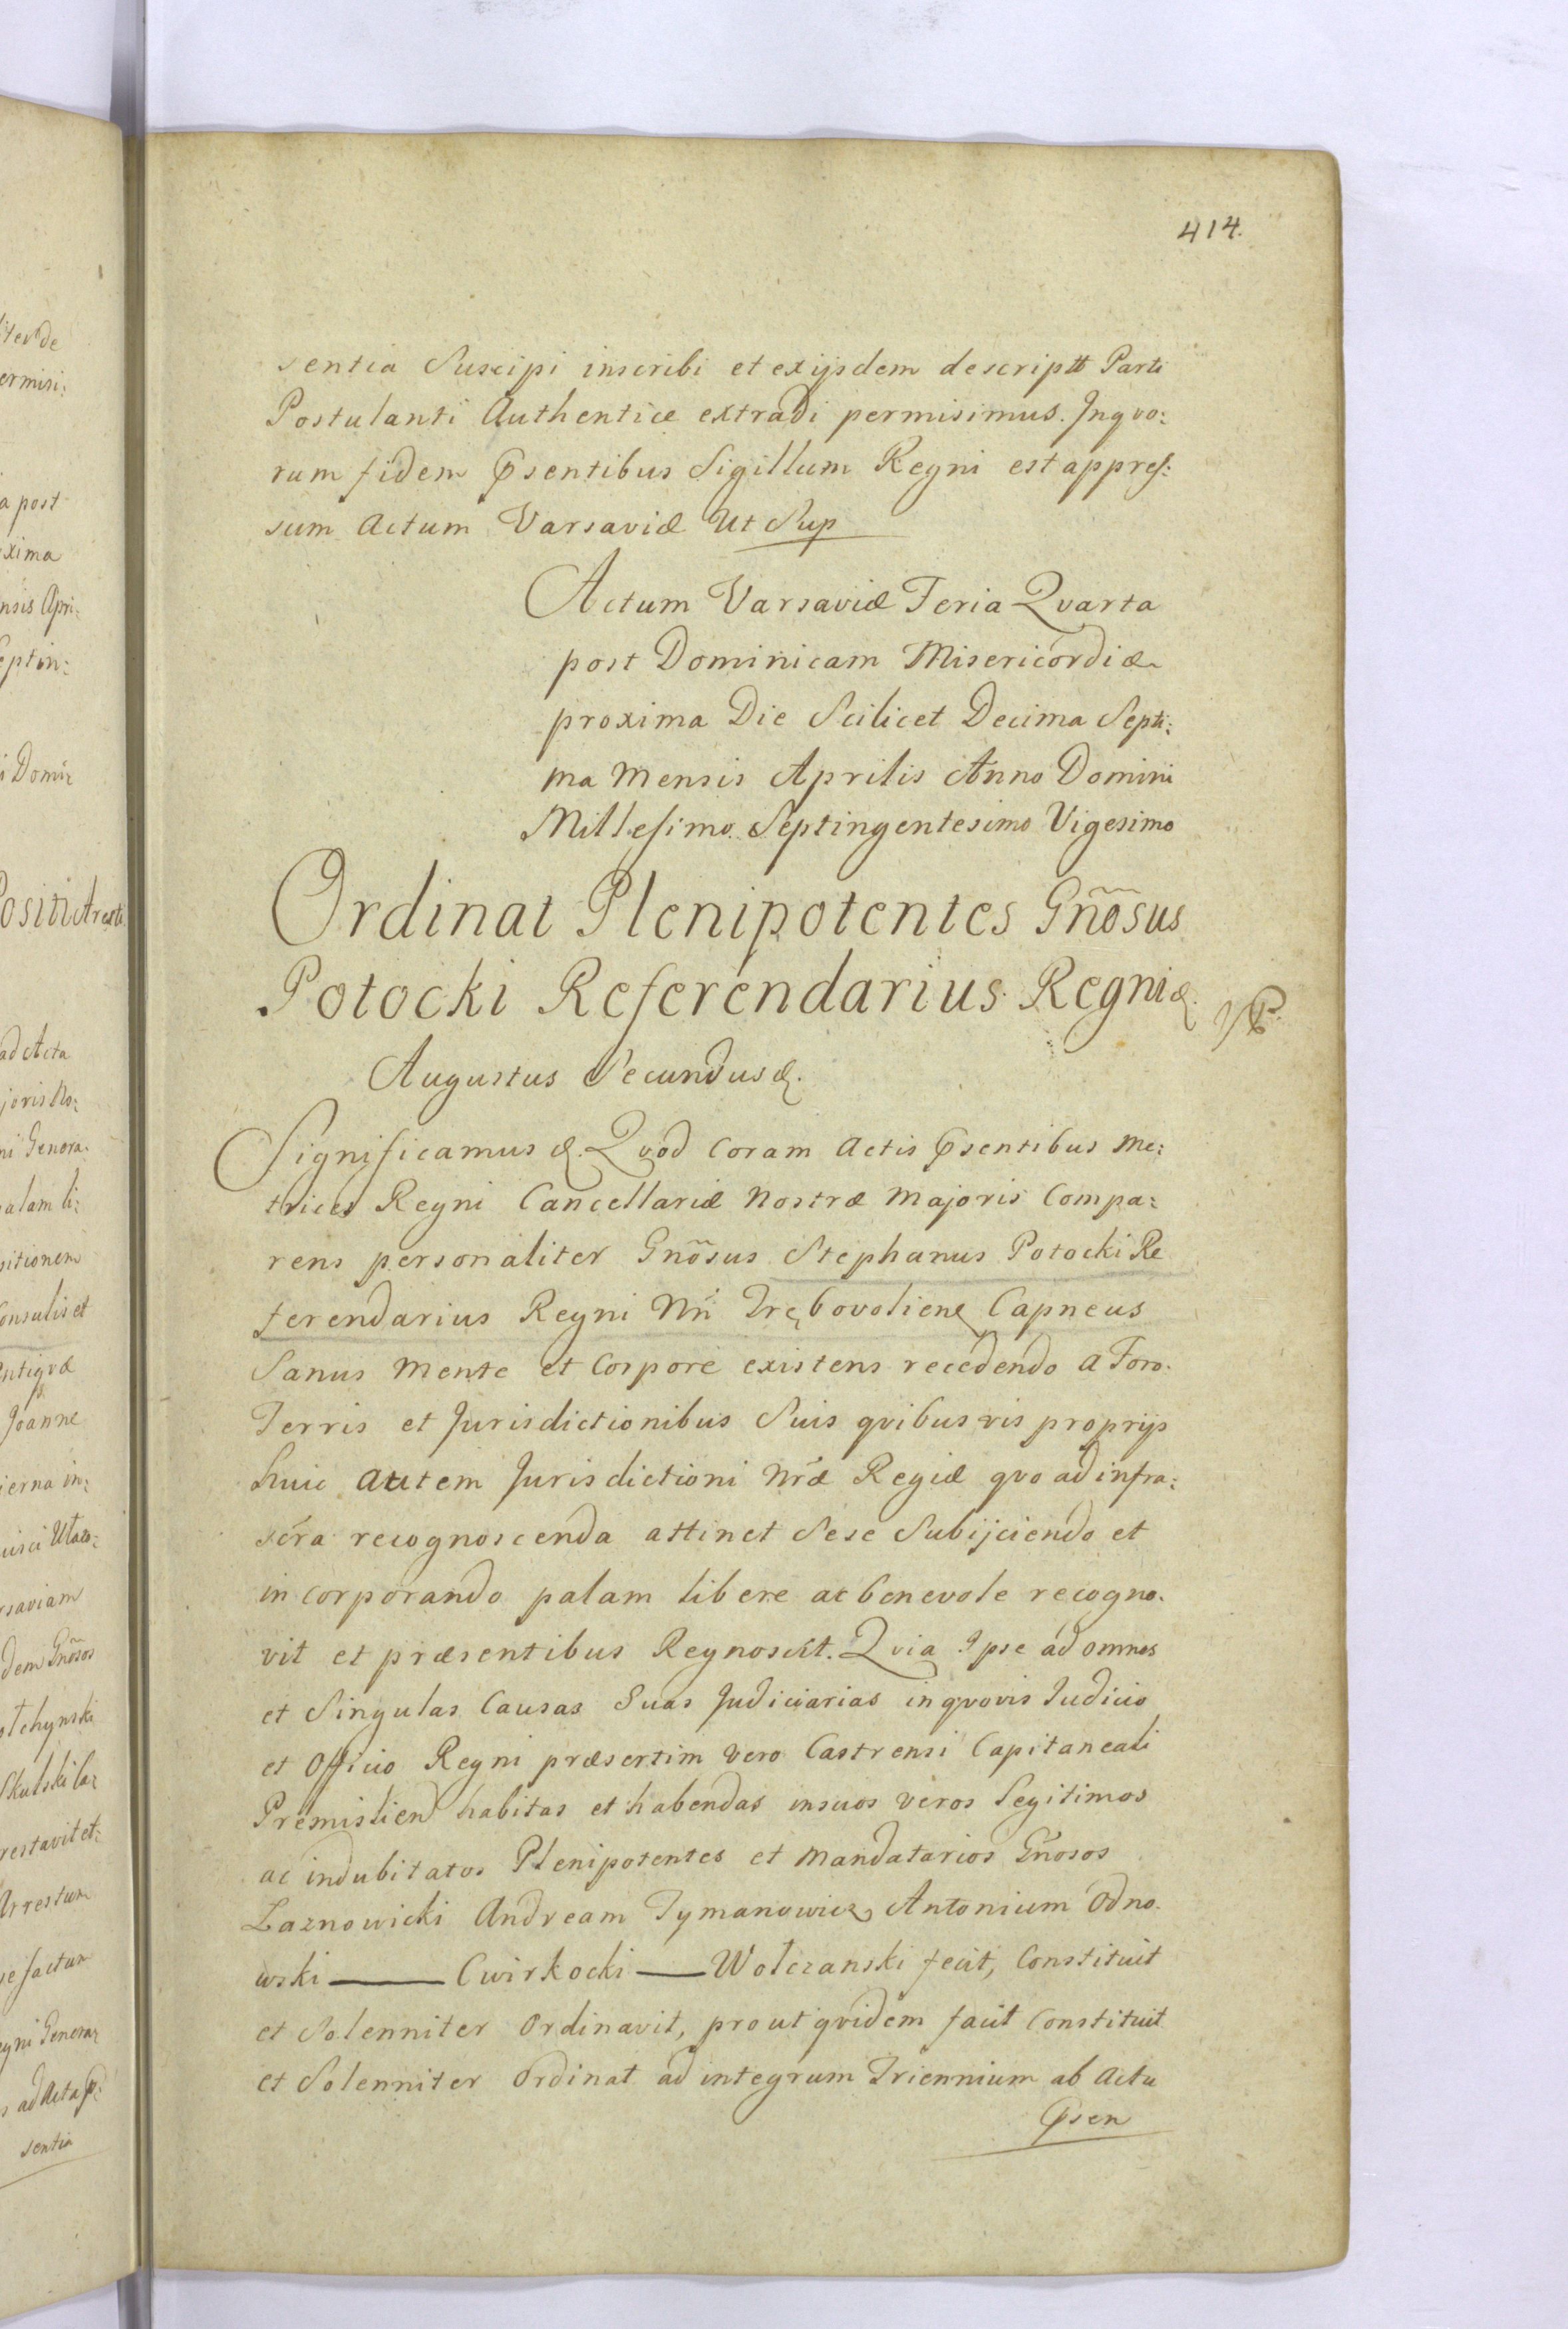 414.
sentia Suscipi inscribi et exijsdem descriptt Parti
Postulanti Authentice extradi permisimus. Inqvo:
rum fidem Psentibus Sigillum Regni est appres:
sum Actum Varsaviæ Ut Sup
Actum Varsaviæ Feria Qvarta
post Dominicam Misericordiæ
proxima Die Scilicet Decima Septi:
ma Mensis Aprilis Anno Domini
Millesimo Septingentesimo Vigesimo
Ordinat Plenipotentes Gñosus
Potocki Referendarius Regni &.
Augustus Secundus &.
Significamus &. Qvod Coram Actis Psentibus Me:
trices Regni Cancellariæ Nostræ Majoris Compa:
rens personaliter Gñosus Stephanus Potocki Re
ferendarius Regni Nrí Trębovoliens Capneus
Sanus Mente et Corpore existens recedendo a Foro.
Terris et Jurisdictionibus Suis qvibusvis proprijs
huic autem Jurisdictioni Nræ Regiæ qvo ad infra:
scra recognoscenda attinet Sese Subijciendo et
incorporando palam libere ac benevole recogno.
vit et præsentibus Regnoscit. Qvia Ipse ad omnes
et Singulas Causas Suas Judiciarias in qvovis Iudicio
et Officio Regni præsertim vero Castrensi Capitaneali
Premislien habitas et habendas insuos veros Legitimos
ac indubitatos Plenipotentes et Mandatarios Gñosos
Laznowicki Andream Tymanowicz Antonium Odno.
wski — Cwirkocki — Wołczanski fecit, Constituit
et Solenniter Ordinavit, prout qvidem facit Constituit
et Solenniter Ordinat ad integrum Triennium ab Actu
Psen